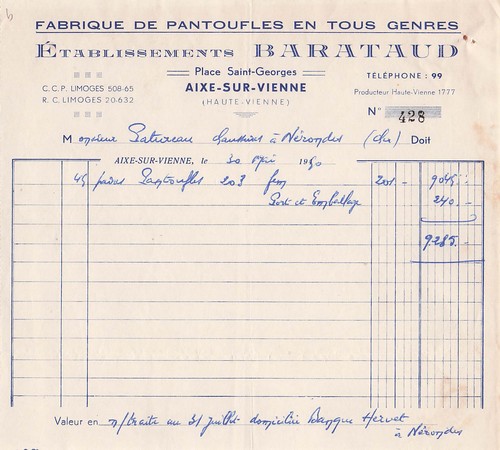 FABRIQUE DE PANTOUFLES EN TOUS GENRES
ÉTABLISSEMENTS BARATAUD
C.C.P. LIMOGES 508-65
R.C. LIMOGES 20-632
Place Saint-Georges
AIXE-SUR-VIENNE
(HAUTE-VIENNE)
TÉLÉPHONE : 99
Producteur Haute-Vienne 1777
N° 428
Monsieur à Nérondes (Cher) Doit
AIXE-SUR-VIENNE, le 30 Mai 1950
45 paires Pantoufles 203 fem 201 - 9045 -
Port et Emballage 240 -
9285 -
Valeur en n/traite au 31 juillet domiciliée Banque Hervet
à Nérondes